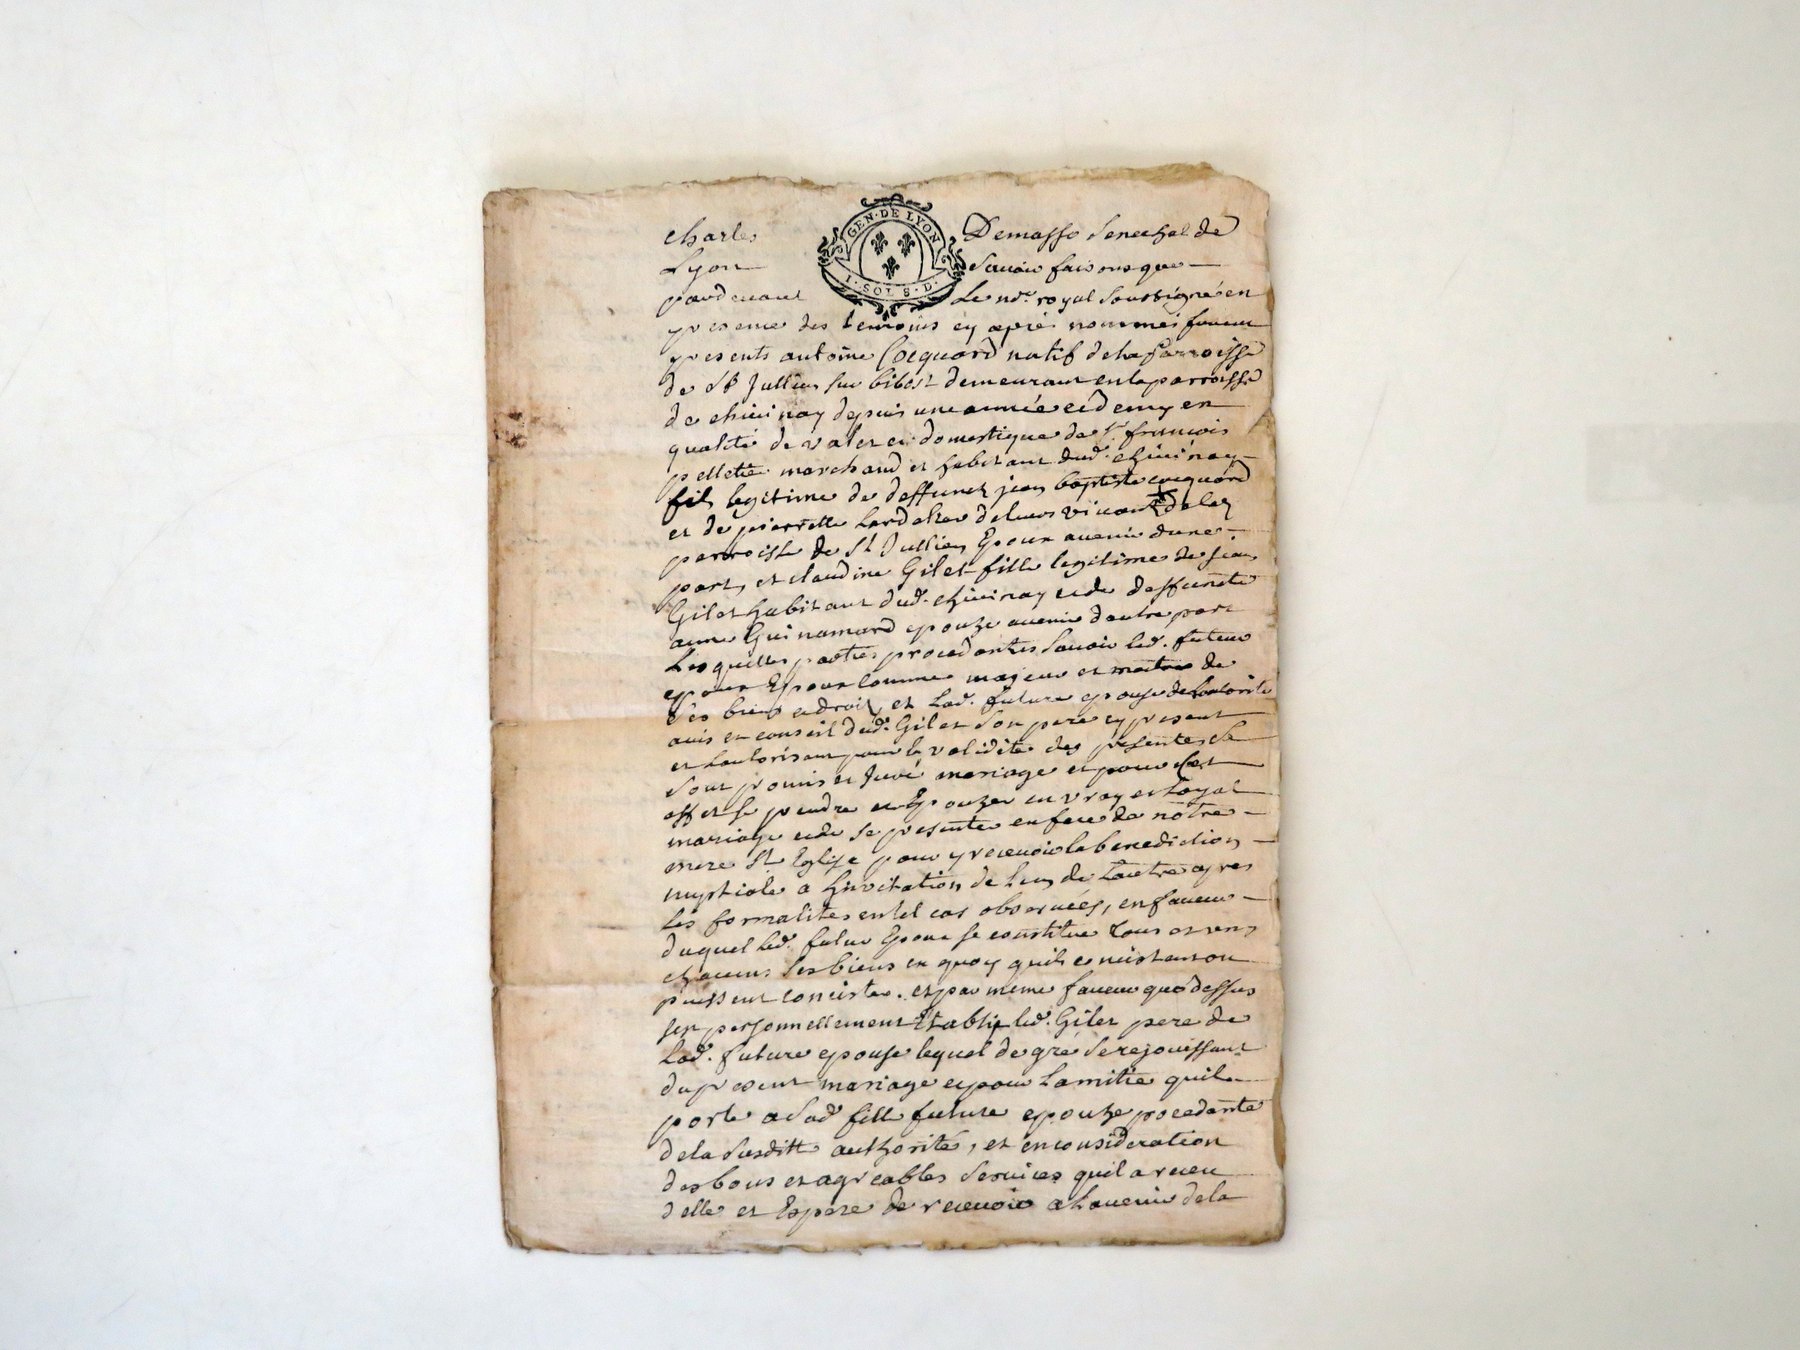 GEN · DE LYON
I · SOL 8 · D ·
charles Demasso Senechal de
Lyon Savoir faisons que
pardevant Le no.re royal soussigné en
presence des temoins cy après nommés furent
presents antoine Cocquard natif de la Parroisse
de St Jullien sur bibost demeurant en la parroisse
de chivinay depuis une année et demy en
qualité de valet et domestique de sr françois
pelletie marchand et habitant dud. chivinay
fils legitime de deffunct jean baptiste cocquard
et de pierrette de leurs vivant de lad
parroisse de St Jullien Epoux avenir dune
part, et claudine Gilet fille legitime de jean
Gilet habitant dud. chivinay et de deffuncte
anne Guinamard epouze avenir dautre part
Lesquelles parties procedantes savoir led. futeur
epoux comme majeur et maitre de
ses biens et droits, et lad. future epouse de Lautorité
avis et conseil dud. Gilet son pere cy present
et Lautorisant pour la validité des présentes se
sont promis et Juré mariage et pour cet
effet se prendre et Epouzer en vray et Loyal
mariage et de se presenter en face de notre
mere Ste Eglise pour y recevoir la benediction
nuptiale a Linvitation de Lun de Lautre apres
les formalites en tel cas observées, en faveur
duquel led. futur Epoux se constitue tous et uns
chacuns ses biens en quoy quils concistent ou
puissent concister. et par meme faveur que dessus
sest personnellement Etably led. Gilet pere de
Lad. future epouse lequel de gré se rejouissant
du present mariage et pour Lamitié quil
porte a sad. fille future epouze procedante
de la susditte authorité, et en consideration
des bons et agreables services quil a receu
delle et Espere de recevoir a Lavenir de la